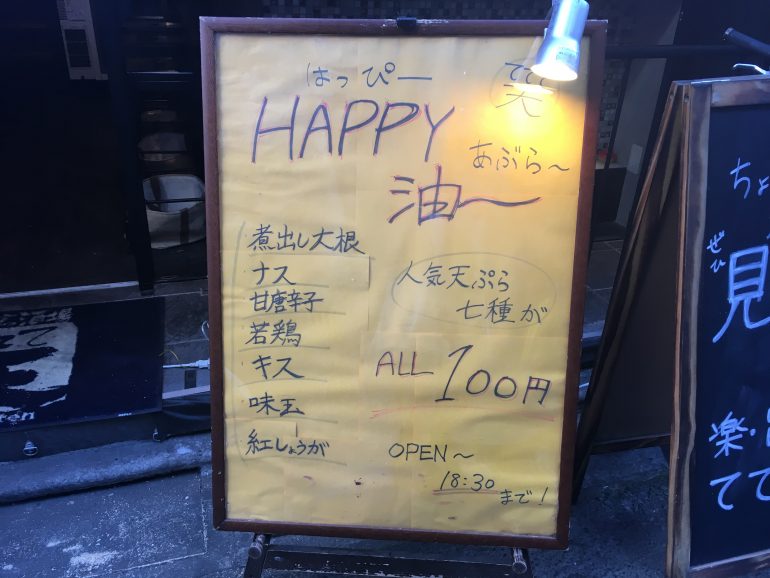 はっぴー
HAPPY
あぶら～
油～
煮出し大根
ナス
甘唐辛子
若鶏
キス
味玉
紅しょうが
人気天ぷら
七種が
ALL 100円
OPEN～
18:30
まで！
ちょ
ぜひ
見
楽・
てて